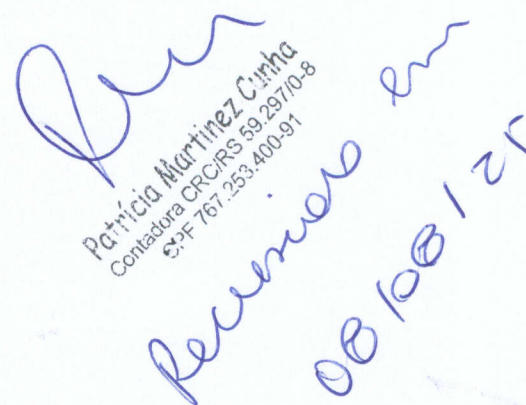 Patrícia Martinez Cunha
Contadora CRC/RS 59.297/0-8
CPF 767.253.400-91
Recebido em
08/08/25